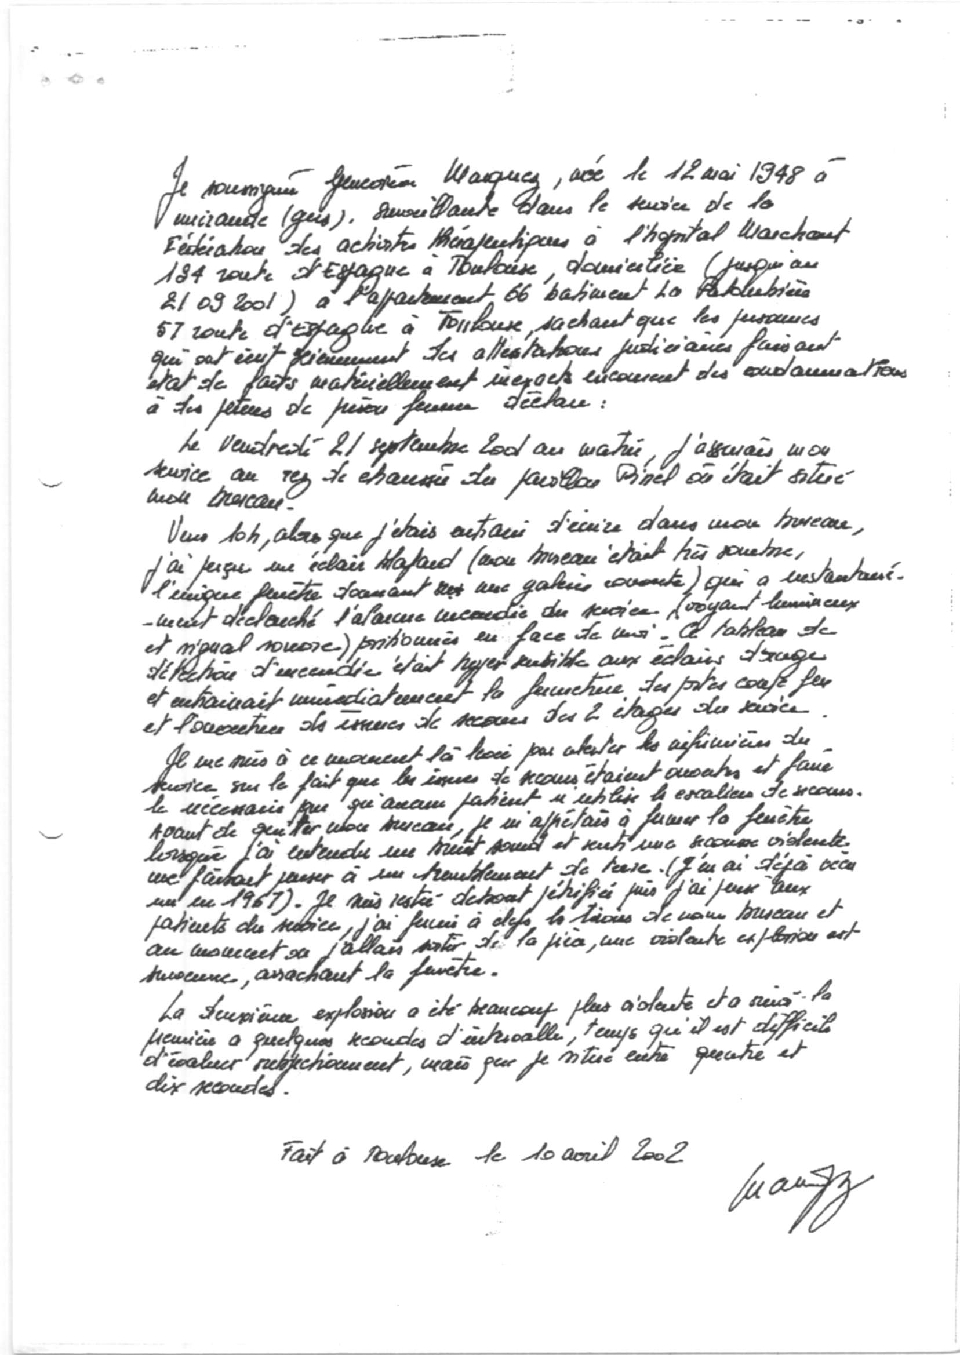 Je soussignée Geneviève Marquez, née le 12 mai 1948 à
mirande (gers). Surveillante dans le service de la
Fédération des activités thérapeutiques à l'hopital Marchant
134 route d'Espagne à Toulouse, domiciliée (jusqu'au
21 09 2001) à l'appartement 66 batiment La
57 route d'Espagne à Toulouse, sachant que les personnes
qui ont écrit sciemment des attestations judiciaires faisant
état de faits matériellement inexacts encourent des condamnations
à des peines de prison ferme déclare :
Le Vendredi 21 septembre 2001 au matin, j'assurais mon
service au rez de chaussée du pavillon Pinel où était situé
mon bureau.
Vers 10h, alors que j'étais entrain d'écrire dans mon bureau,
j'ai perçu un éclair blafard (mon bureau était très sombre,
l'unique fenêtre donnant sur une galerie couverte) qui a instantané-
-ment déclenché l'alarme incendie du service (voyant lumineux
et signal sonore) positionnés en face de moi. Ce tableau de
détection d'incendie était hyper sensible aux éclairs d'orage
et entrainait immédiatement la fermeture des portes coupe feu
et l'ouverture des issues de secours des 2 étages du service.
Je me suis à ce moment là levée pour alerter les infirmiers du
service sur le fait que les issues de secours étaient ouvertes et faire
le nécessaire pour qu'aucun patient n'utilise les escaliers de secours.
Avant de quitter mon bureau, je m'apprêtais à fermer la fenêtre
lorsque j'ai entendu un bruit sourd et senti une secousse violente
me faisant penser à un tremblement de terre. (J'en ai déjà vécu
un en 1967). Je suis restée debout pétrifiée puis j'ai pensé aux
patients du service, j'ai fermé à clefs les tiroirs de mon bureau et
au moment ou j'allais sortir de la pièce, une violente explosion est
survenue, arrachant la fenêtre.
La deuxième explosion a été beaucoup plus violente et a suivi la
première a quelques secondes d'intervalle, temps qu'il est difficile
d'évaluer subjectivement, mais que je situe entre quatre et
dix secondes.
Fait à Toulouse le 10 avril 2002